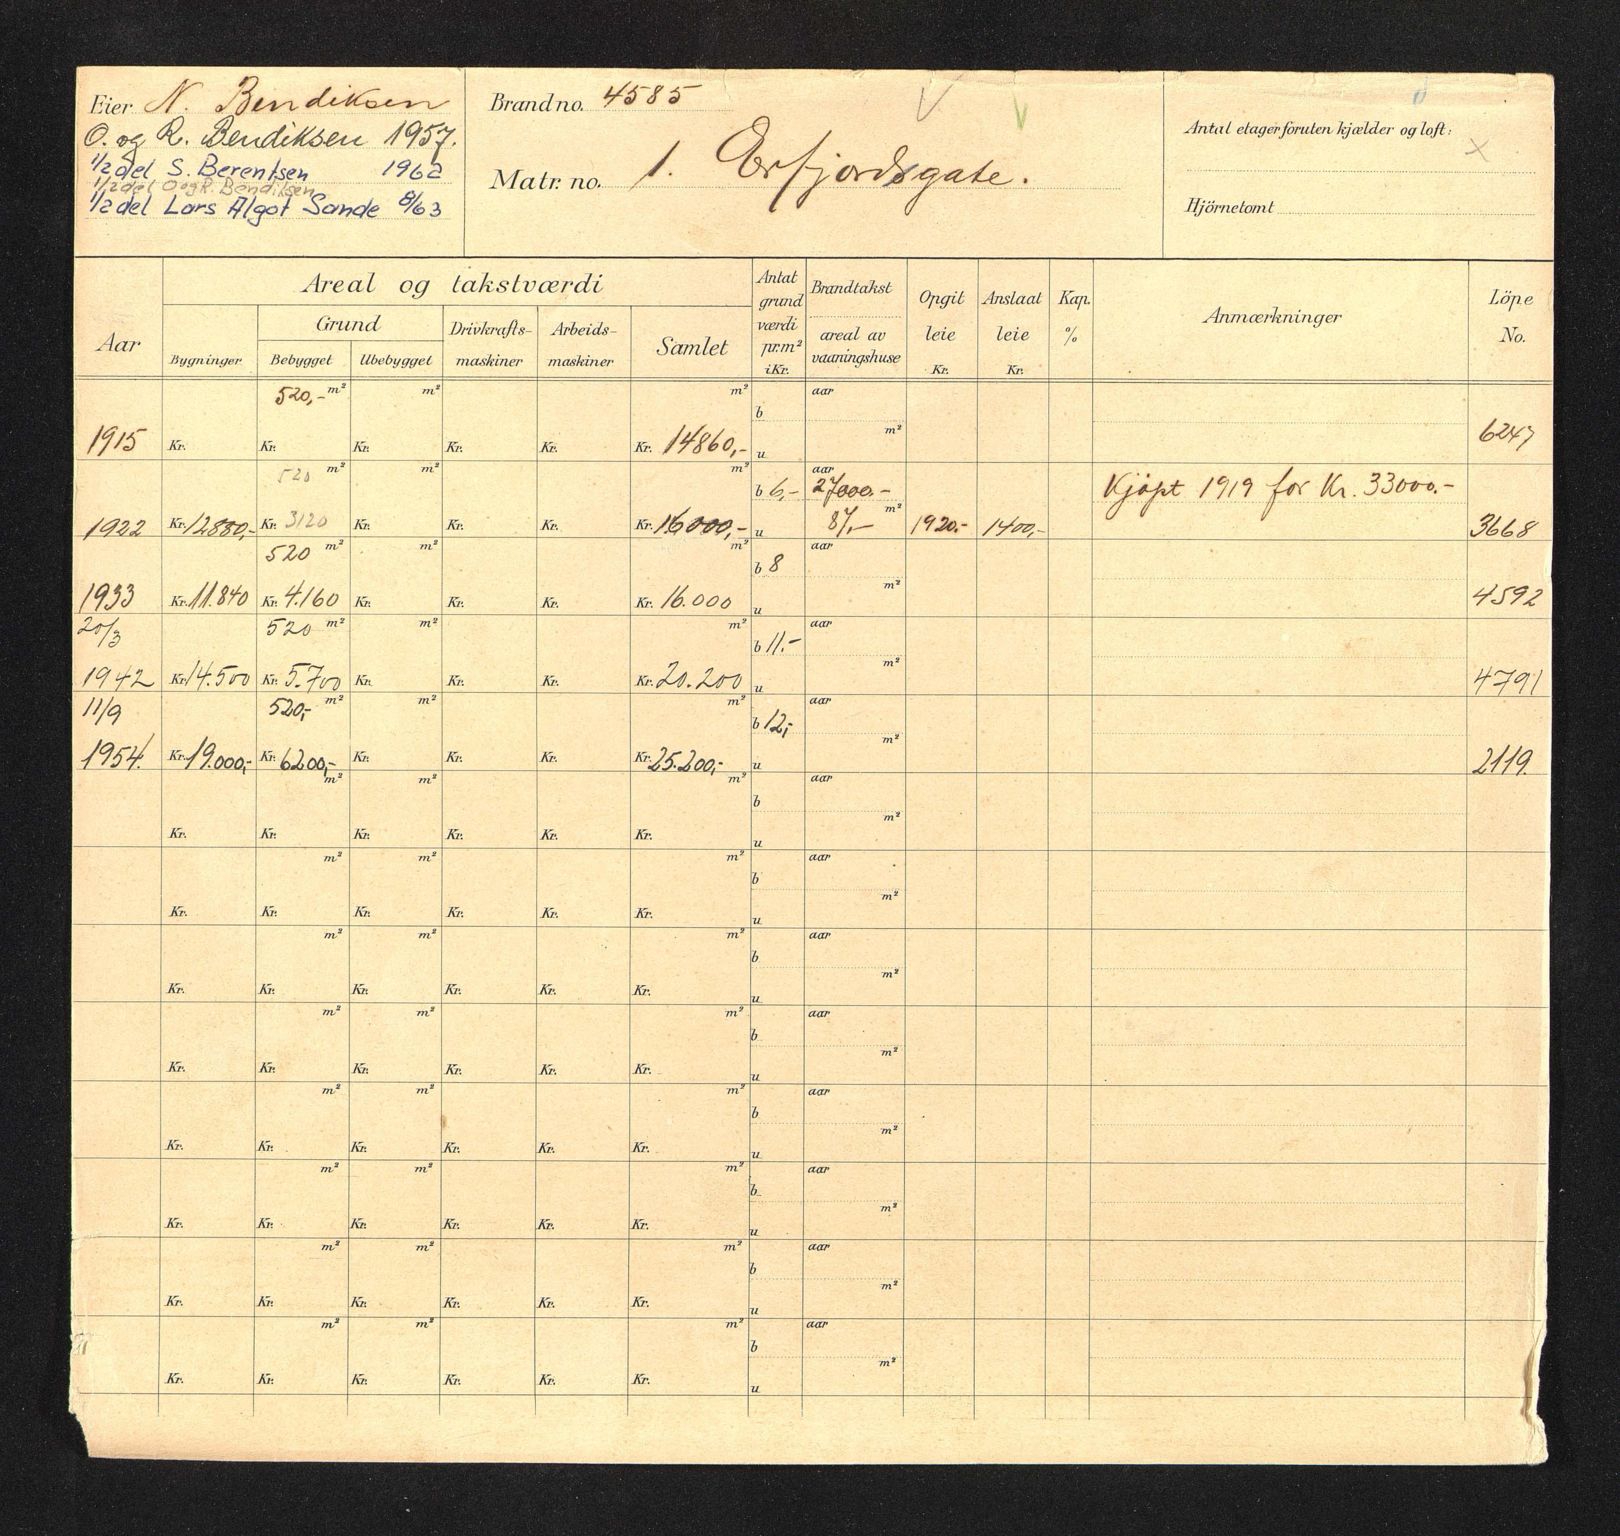 Eier N. Bendiksen
O. og R. Bendiksen 1957.
1/2 del S. Berentsen 1962
1/2 del O og R. Bendiksen
1/2 del Lars Algot Sande 8/63
Brand no. 4585
Matr. no. 1. Erfjordsgate.
Antal etager foruten kjælder og loft:
X
Hjörnetomt
Aar
Areal og takstværdi
Bygninger
Grund
Bebygget Ubebygget
Drivkrafts-
maskiner
Arbeids-
maskiner
Samlet
Antat
grund
værdi
pr. m²
i Kr.
Brandtakst
areal av
vaaningshuse
Opgit
leie
Kr.
Anslaat
leie
Kr.
Kap.
%
Anmærkninger
Löpe
No.
520,- m² m² m² aar
b
m²
1915 Kr. Kr. Kr. Kr. Kr. Kr. 14860,- u 6247
520 m² m² m² aar
b 6,- 27000.- Kjøpt 1919 for Kr. 33000.-
m²
1922 Kr. 12880,- Kr. 3120 Kr. Kr. Kr. Kr. 16000,- u 87,- 1920.- 1400,- 3668
520 m² m² m² aar
b 8
m²
1933 Kr. 11.840 Kr. 4.160 Kr. Kr. Kr. Kr. 16.000 u 4592
20/3 520 m² m² m² aar
b 11.-
m²
1942 Kr. 14.500 Kr. 5.700 Kr. Kr. Kr. Kr. 20.200 u 4791
11/9 520,- m² m² m² aar
b 12,-
m²
1954. Kr. 19.000,- Kr. 6200,- Kr. Kr. Kr. Kr. 25.200,- u 2119.
m² m² m² aar
b
m²
Kr. Kr. Kr. Kr. Kr. Kr. u
m² m² m² aar
b
m²
Kr. Kr. Kr. Kr. Kr. Kr. u
m² m² m² aar
b
m²
Kr. Kr. Kr. Kr. Kr. Kr. u
m² m² m² aar
b
m²
Kr. Kr. Kr. Kr. Kr. Kr. u
m² m² m² aar
b
m²
Kr. Kr. Kr. Kr. Kr. Kr. u
m² m² m² aar
b
m²
Kr. Kr. Kr. Kr. Kr. Kr. u
m² m² m² aar
b
m²
Kr. Kr. Kr. Kr. Kr. Kr. u
m² m² m² aar
b
m²
Kr. Kr. Kr. Kr. Kr. Kr. u